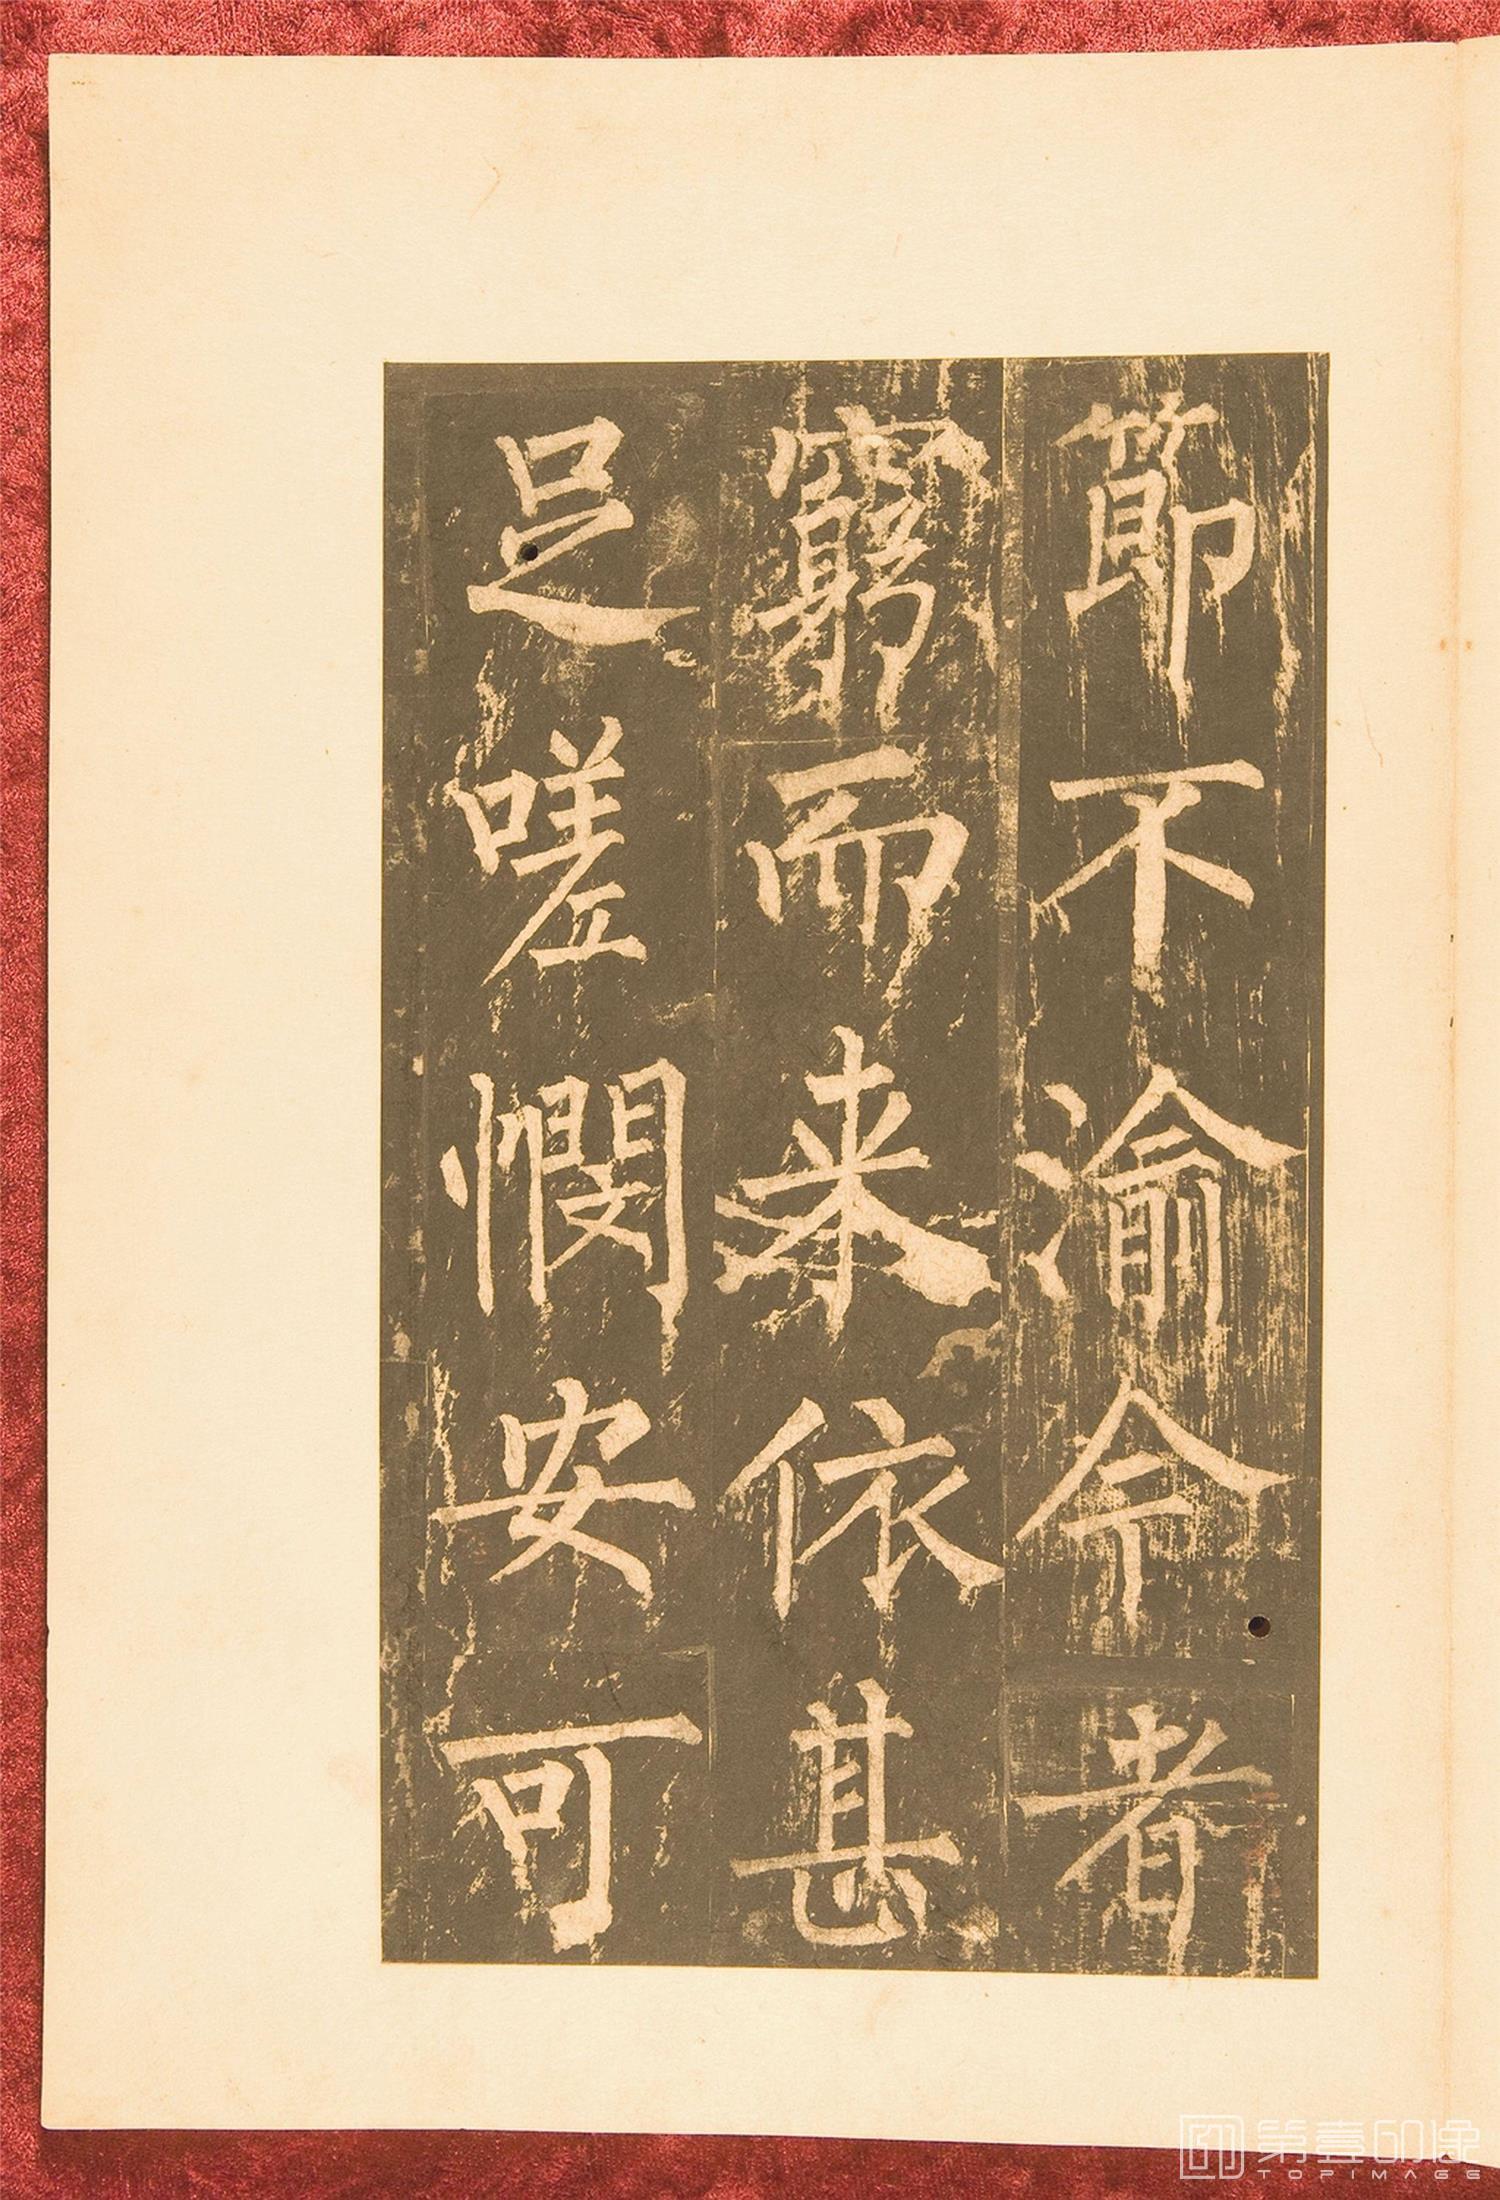 節不渝今者
窮而来依甚
足嗟憫安可
第壹印像
TOPIMAGE